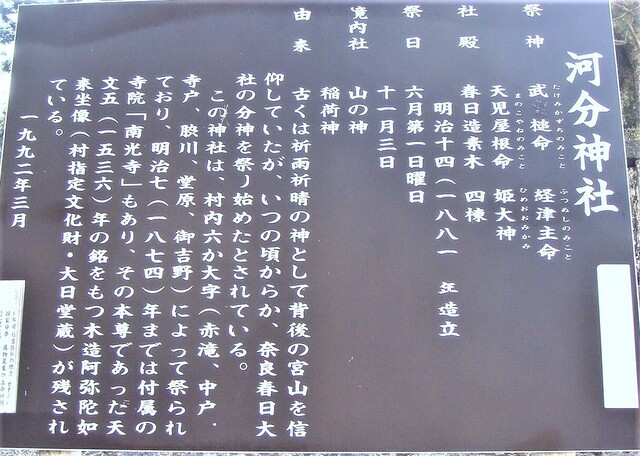 河分神社
祭神 武甕槌命 経津主命
たけみかずちのみこと ふつぬしのみこと
天児屋根命 姫大神
まのこやねのみこと ひめおおみかみ
社殿 春日造素木 四棟
明治十四(一八八一 年造立
祭日 六月第一日曜日
十一月三日
境内社 山の神
稲荷神
由来
古くは祈雨祈晴の神として背後の宮山を信
仰していたが、いつの頃からか、奈良春日大
社の分神を祭り始めたとされている。
この神社は、村内六か大字(赤滝、中戸、
寺戸、脇川、堂原、御吉野)によって祭られ
ており、明治七(一八七四)年までは付属の
寺院「南光寺」もあり、その本尊であった天
文五(一五三六)年の銘をもつ木造阿弥陀如
来坐像(村指定文化財・大日堂蔵)が残され
ている。
一九九二年三月